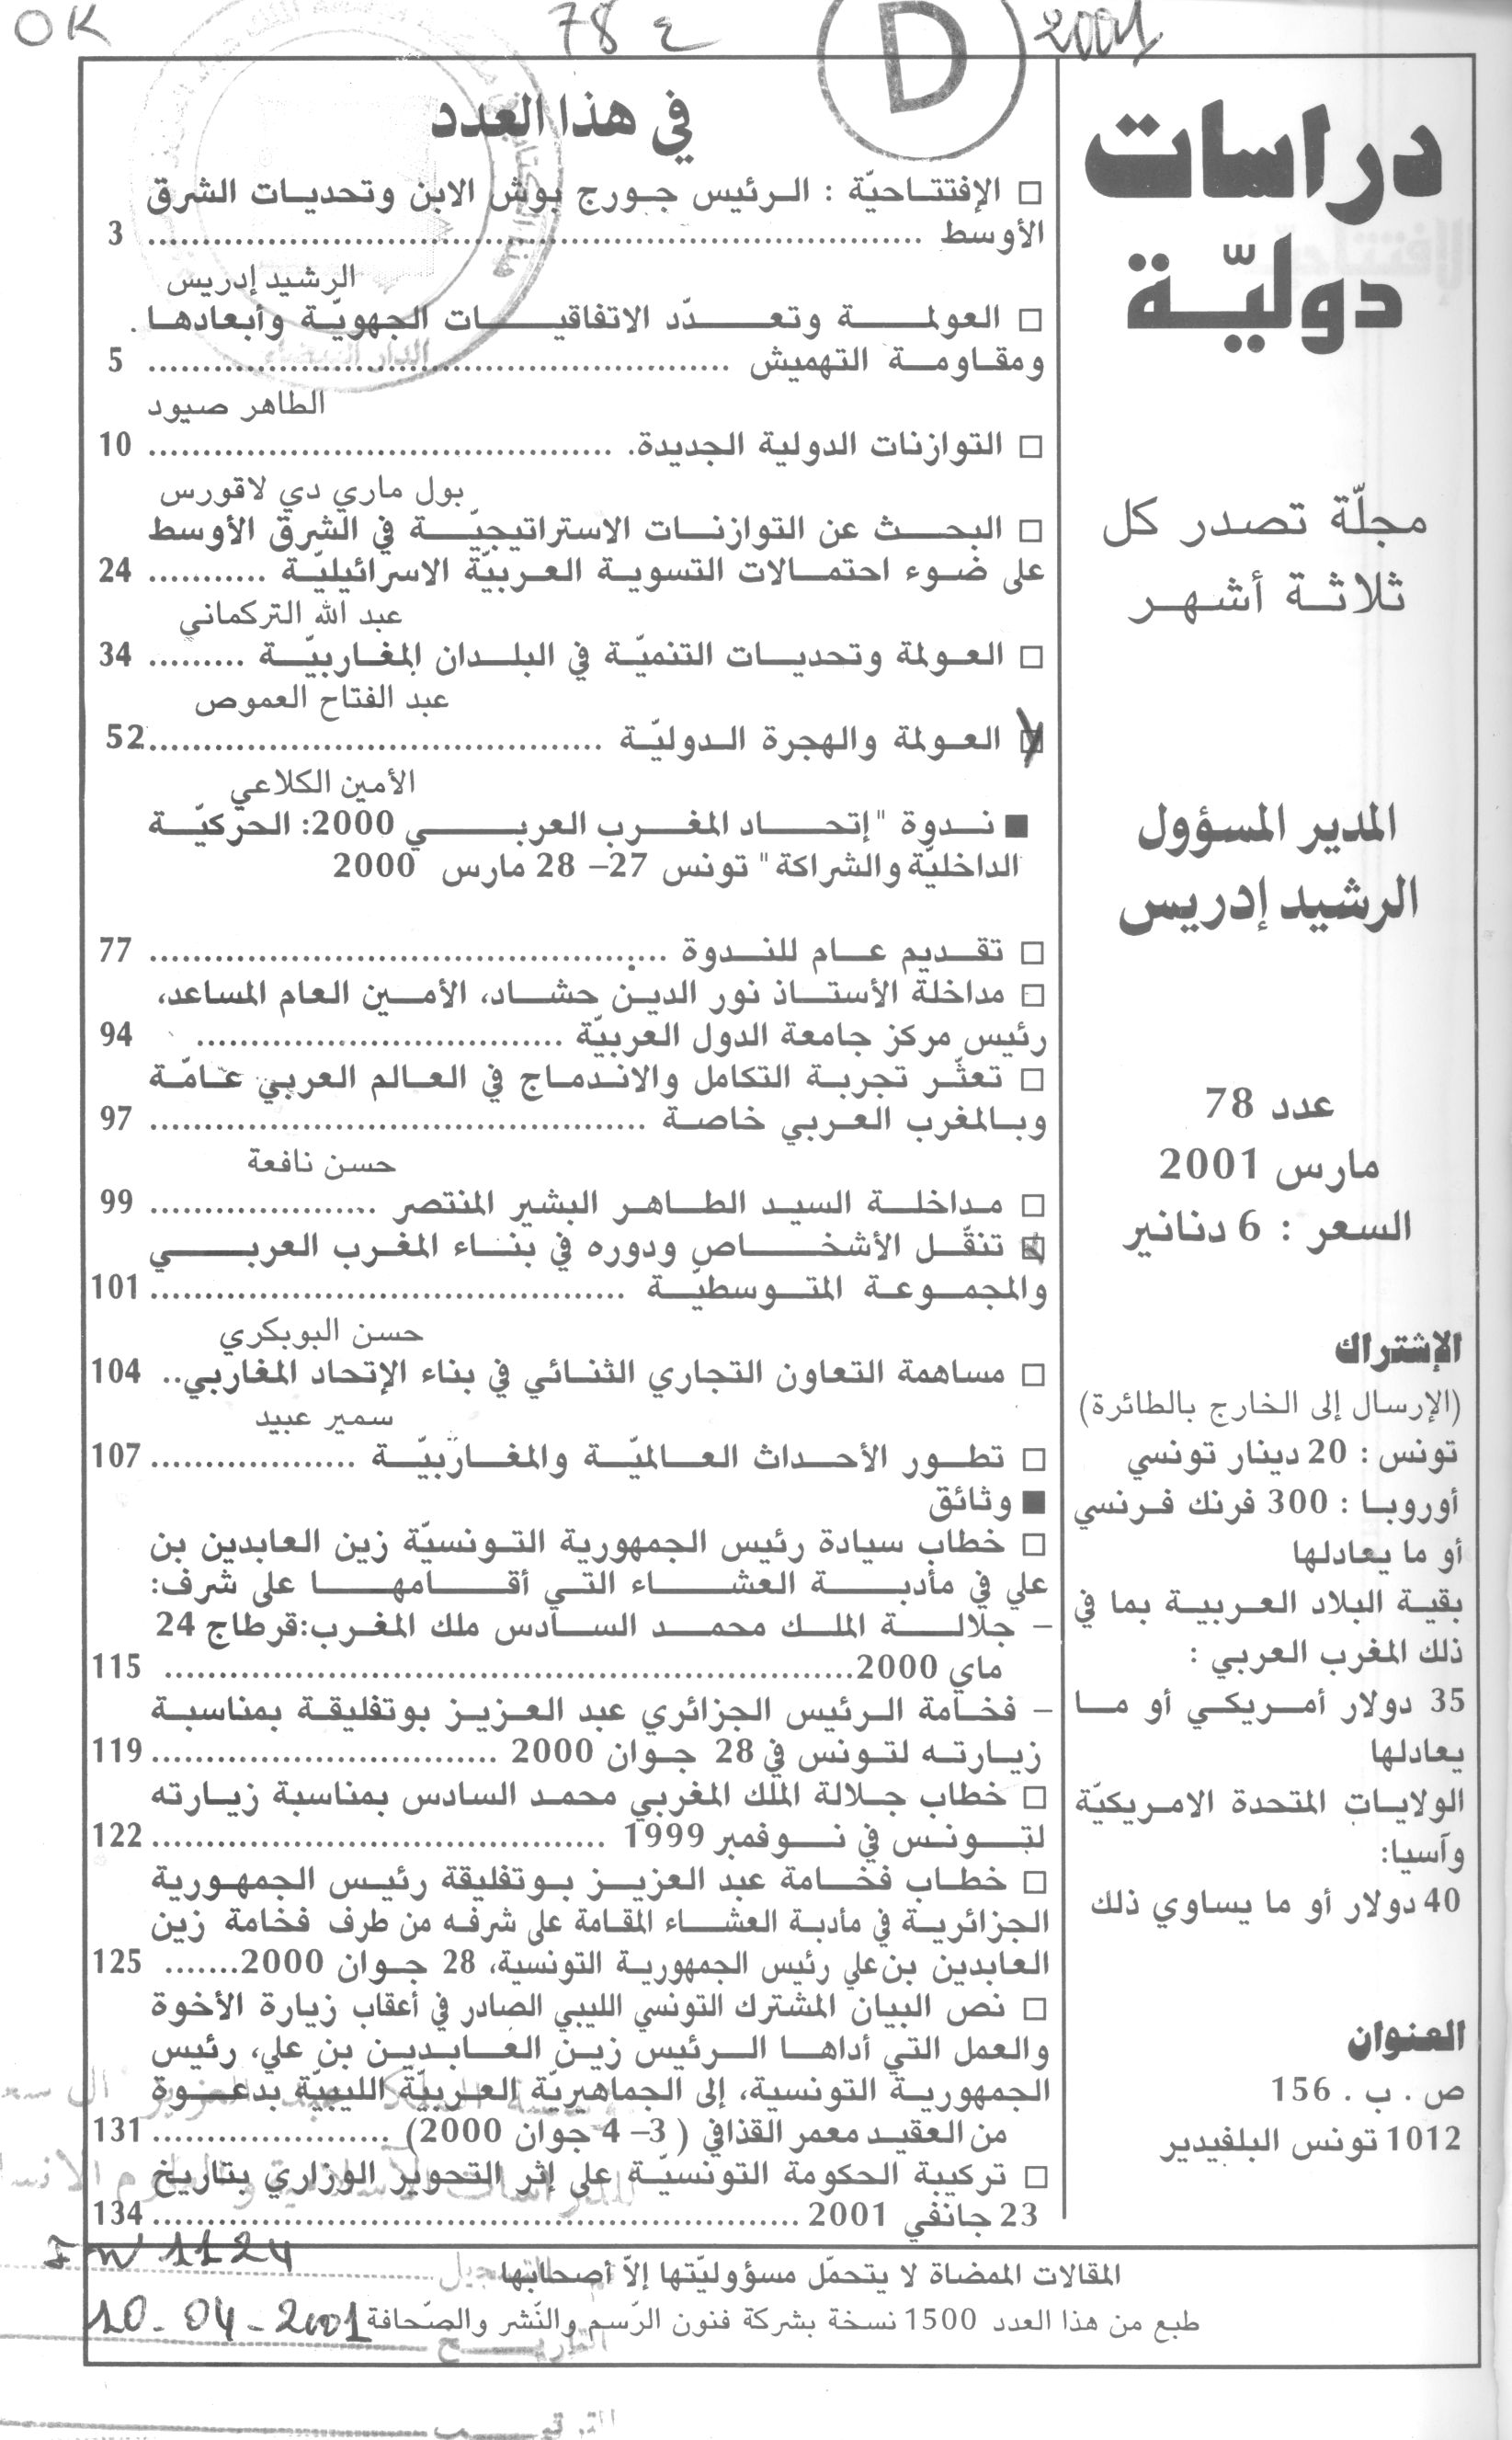 OK
78 ع
D
2001
دراسات
دوليّة
مجلّة تصدر كل
ثلاثة أشهر
المدير المسؤول
الرشيد إدريس
عدد 78
مارس 2001
السعر : 6 دنانير
الإشتراك
(الإرسال إلى الخارج بالطائرة)
تونس : 20 دينار تونسي
أوروبا : 300 فرنك فرنسي
أو ما يعادلها
بقية البلاد العربية بما في
ذلك المغرب العربي :
35 دولار أمريكي أو ما
يعادلها
الولايات المتحدة الامريكيّة
وآسيا:
40 دولار أو ما يساوي ذلك
العنوان
ص . ب . 156
1012 تونس البلفيدير
في هذا العدد
□ الإفتتاحيّة : الرئيس جورج بوش الابن وتحديات الشرق
الأوسط ........ 3
الرشيد إدريس
□ العولمة وتعدّد الاتفاقيات الجهويّة وأبعادها
ومقاومة التهميش ........ 5
الطاهر صيود
□ التوازنات الدولية الجديدة. ........ 10
بول ماري دي لاقورس
□ البحث عن التوازنات الاستراتيجيّة في الشرق الأوسط
على ضوء احتمالات التسوية العربيّة الاسرائيليّة ........ 24
عبد الله التركماني
□ العولمة وتحديات التنميّة في البلدان المغاربيّة ........ 34
عبد الفتاح العموص
□ العولمة والهجرة الدوليّة ........ 52
الأمين الكلاعي
■ ندوة "إتحاد المغرب العربي 2000: الحركيّة
الداخليّة والشراكة" تونس 27– 28 مارس 2000
□ تقديم عام للندوة ........ 77
□ مداخلة الأستاذ نور الدين حشاد، الأمين العام المساعد،
رئيس مركز جامعة الدول العربيّة ........ 94
□ تعثّر تجربة التكامل والاندماج في العالم العربي عامّة
وبالمغرب العربي خاصة ........ 97
حسن نافعة
□ مداخلة السيد الطاهر البشير المنتصر ........ 99
□ تنقّل الأشخاص ودوره في بناء المغرب العربي
والمجموعة المتوسطيّة ........ 101
حسن البوبكري
□ مساهمة التعاون التجاري الثنائي في بناء الإتحاد المغاربي.. 104
سمير عبيد
□ تطور الأحداث العالميّة والمغاربيّة ........ 107
■ وثائق
□ خطاب سيادة رئيس الجمهورية التونسيّة زين العابدين بن
علي في مأدبة العشاء التي أقامها على شرف:
– جلالة الملك محمد السادس ملك المغرب:قرطاج 24
ماي 2000........ 115
– فخامة الرئيس الجزائري عبد العزيز بوتفليقة بمناسبة
زيارته لتونس في 28 جوان 2000 ........ 119
□ خطاب جلالة الملك المغربي محمد السادس بمناسبة زيارته
لتونس في نوفمبر 1999 ........ 122
□ خطاب فخامة عبد العزيز بوتفليقة رئيس الجمهورية
الجزائرية في مأدبة العشاء المقامة على شرفه من طرف فخامة زين
العابدين بن علي رئيس الجمهورية التونسية، 28 جوان 2000....... 125
□ نص البيان المشترك التونسي الليبي الصادر في أعقاب زيارة الأخوة
والعمل التي أداها الرئيس زين العابدين بن علي، رئيس
الجمهورية التونسية، إلى الجماهيريّة العربيّة الليبيّة بدعوة
من العقيد معمر القذافي ( 3– 4 جوان 2000) ........ 131
□ تركيبة الحكومة التونسيّة على إثر التحوير الوزاري بتاريخ
23 جانفي 2001 ........ 134
المقالات الممضاة لا يتحمّل مسؤوليّتها إلاّ أصحابها
طبع من هذا العدد 1500 نسخة بشركة فنون الرّسم والنّشر والصّحافة
1124
10-04-2001
الدار البيضاء
التاريخ